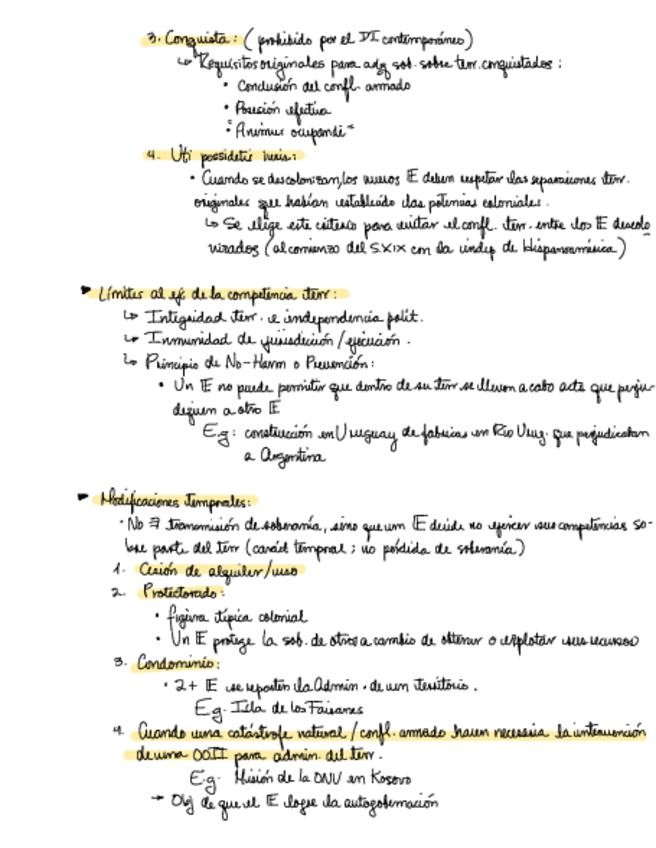 3. Conquista: (prohibido por el DI contemporáneo)
↳ Requisitos originales para adq sob. sobre terr. conquistados:
• Conclusión del confl. armado
• Posesión efectiva
• "Animus ocupandi"
4. Uti possidetis iuris:
• Cuando se descolonizan, los nuevos E deben respetar las separaciones terr.
originales que habían establecido las potencias coloniales.
↳ Se elige este criterio para evitar el confl. terr. entre los E descolo
nizados (al comienzo del S.XIX con la indep de Hispanoamérica)
► Límites al ejc de la competencia terr:
↳ Integridad terr. e independencia polít.
↳ Inmunidad de jurisdicción/ejecución.
↳ Principio de No-Harm o Prevención:
• Un E no puede permitir que dentro de su terr se lleven a cabo acts que perju-
diquen a otro E
E.g: construcción en Uruguay de fabricas en Río Urug. que perjudicaban
a Argentina
► Modificaciones temporales:
• No ∃ transmisión de soberanía, sino que um E decide no ejercer sus competencias so-
bre parte del terr (caráct temporal; no pérdida de soberanía)
1. Cesión de alquiler/uso
2. Protectorado:
• figura típica colonial
• Un E protege la sob. de otros a cambio de obtener o explotar sus recursos
3. Condominio:
• 2+ E se reparten la Admin. de um territorio.
E.g. Isla de los Faisanes
4. Cuando una catástrofe natural/confl. armado hacen necesaria la intervención
de una OOII para admin. del terr.
E.g. Misión de la ONU en Kosovo
→ Obj de que el E logre la autogobernación